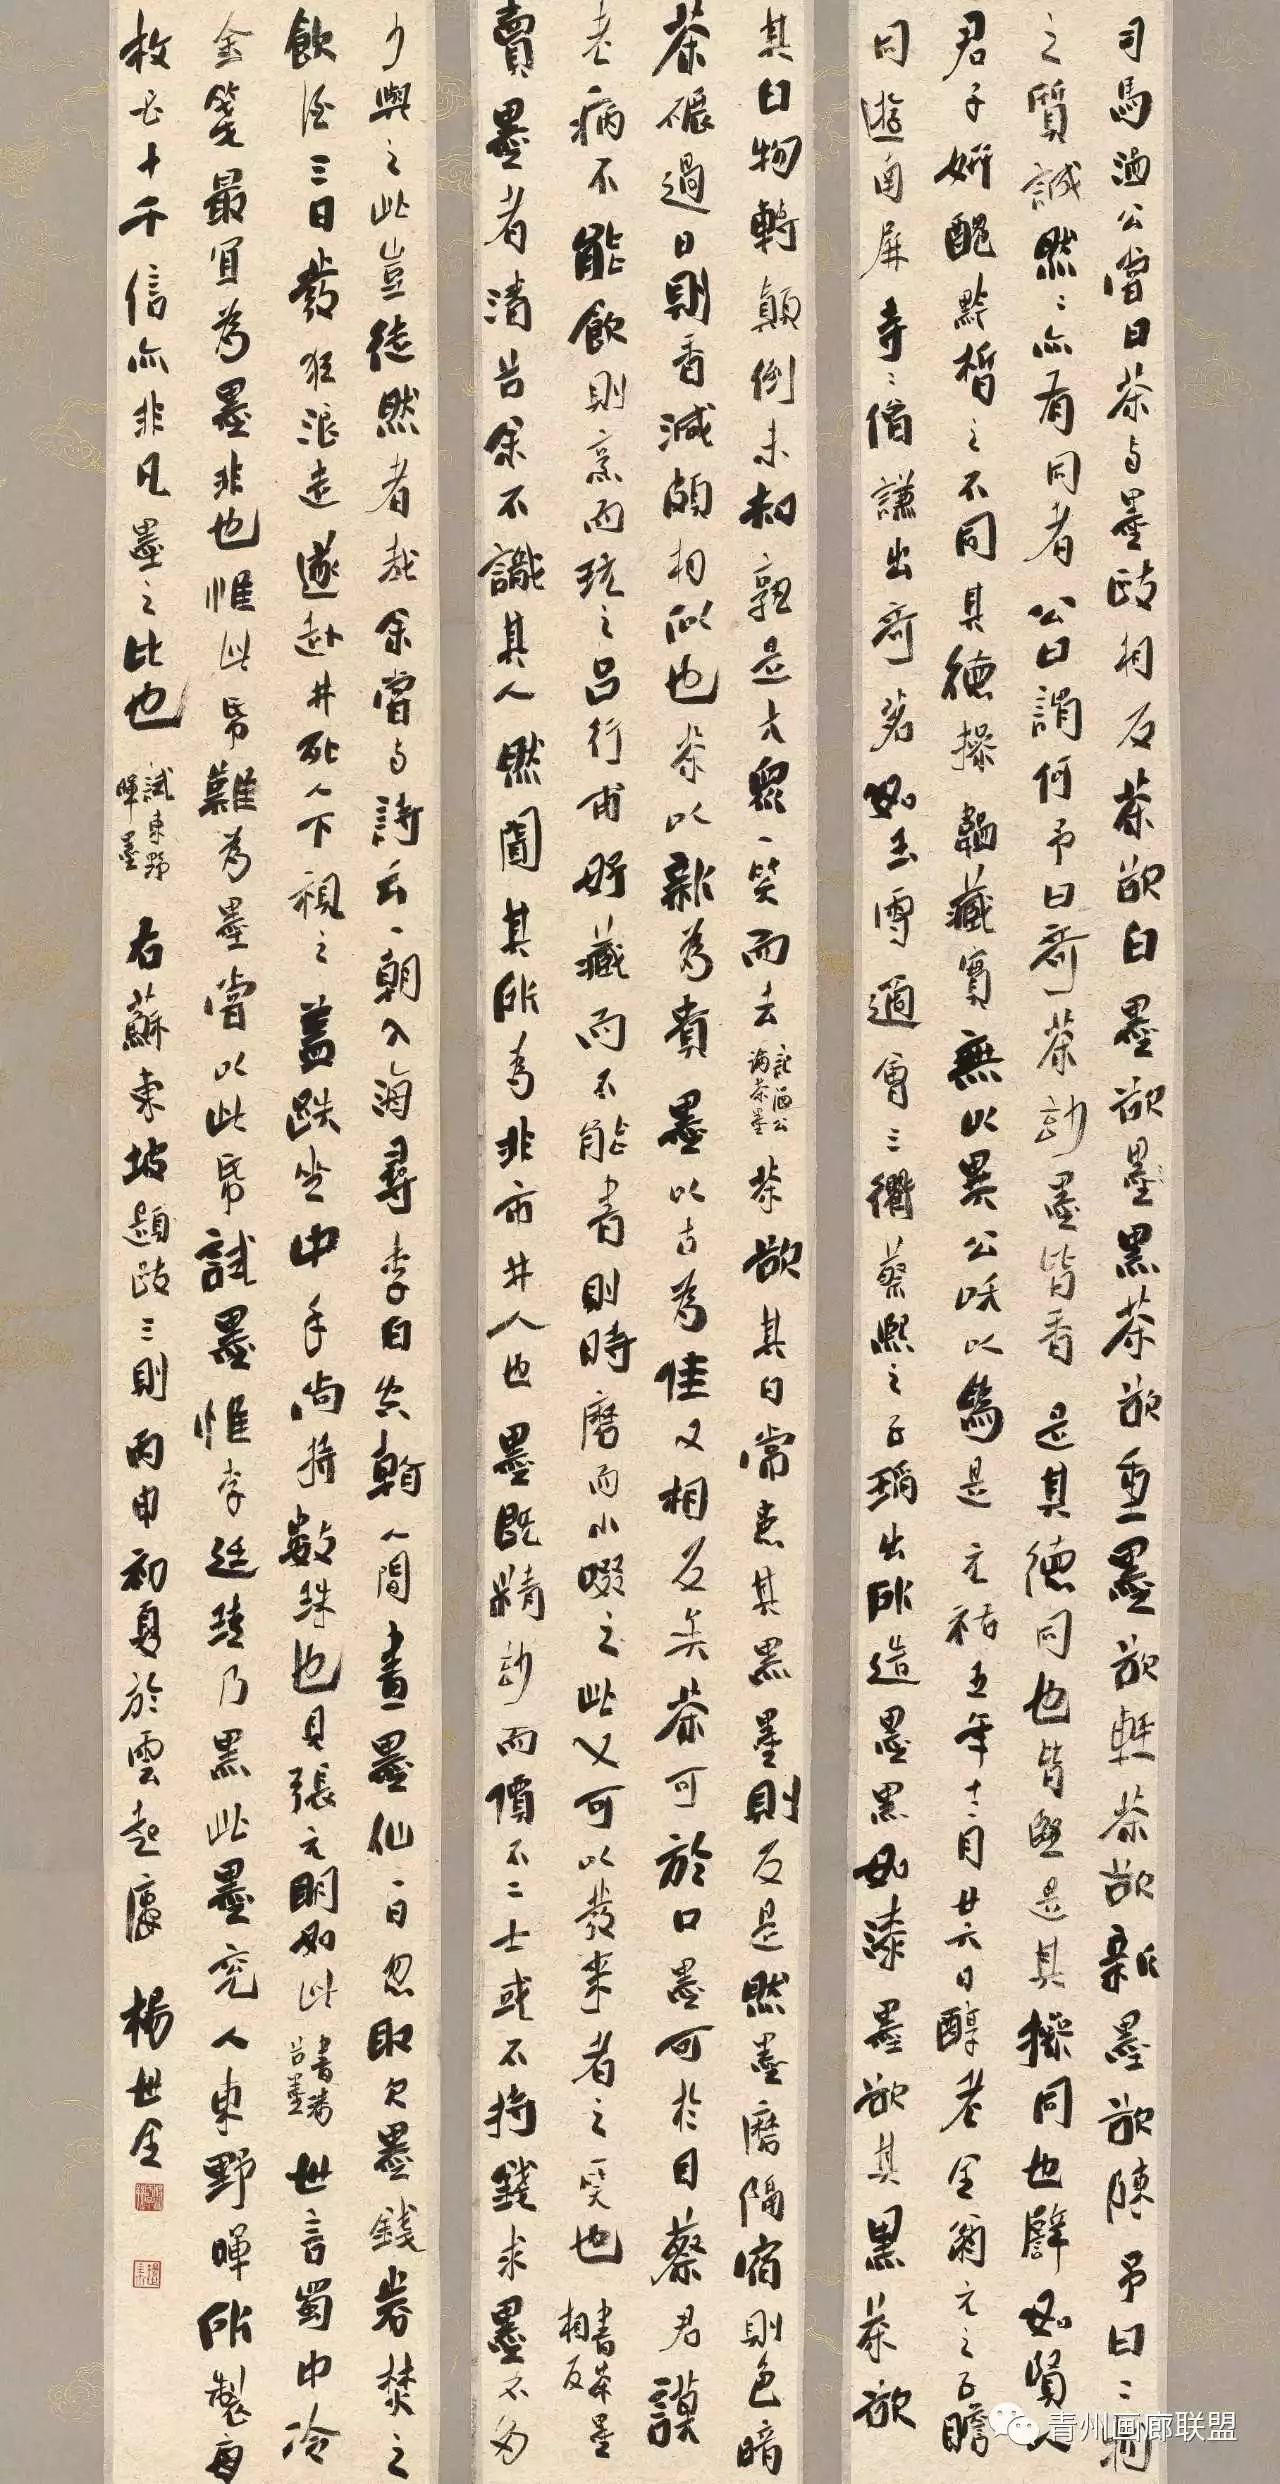 司馬溫公嘗曰茶与墨政相反茶欲白墨欲墨黑茶欲重墨欲輕茶欲新墨欲陳予曰二物
之質誠然二亦有同者公曰謂何予曰奇茶妙墨皆香是其德同也皆堅是其操同也譬如賢人
君子妍醜黔皙之不同其德操韞藏實無以異公咲以為是元祐五年十二月廿六日醇老全翁元之子瞻
同遊南屏寺二僧謙出奇茗如玉雪適會三衢蔡熙之子瑫出所造墨黑如漆墨欲其黑茶欲
其白物轉顛倒未知孰是大眾一笑而去
記溫公
論茶墨
茶欲其白常患其黑墨則反是然墨磨隔宿則色暗
茶碾過日則香減頗相似也茶以新為貴墨以古為佳又相反矣茶可於口墨可於目蔡君謨
老病不能飲則烹而玩之呂行甫好藏而不能書則時磨而小啜之此又可以發來者之一笑也
書茶墨
相反
賣墨者潘谷余不識其人然聞其所為非市井人也墨既精妙而價不二士或不持錢求墨不多
少與之此豈徒然者哉余嘗与詩云一朝入海尋李白空看人間畫墨仙一日忽取欠墨錢券焚之
飲酒三日發狂浪走遂赴井死人下視之蓋趺坐井中手尚持數珠也見張元明如此
書潘
谷墨
世言蜀中冷
金箋最宜為墨非也惟此帋難為墨嘗以此帋試墨惟李廷珪乃黑此墨兗人東野暉所製每
枚必十千信亦非凡墨之比也
試東野
暉墨
右蘇東坡題跋三則丙申初夏於雲起廔
楊世全
青州画廊联盟